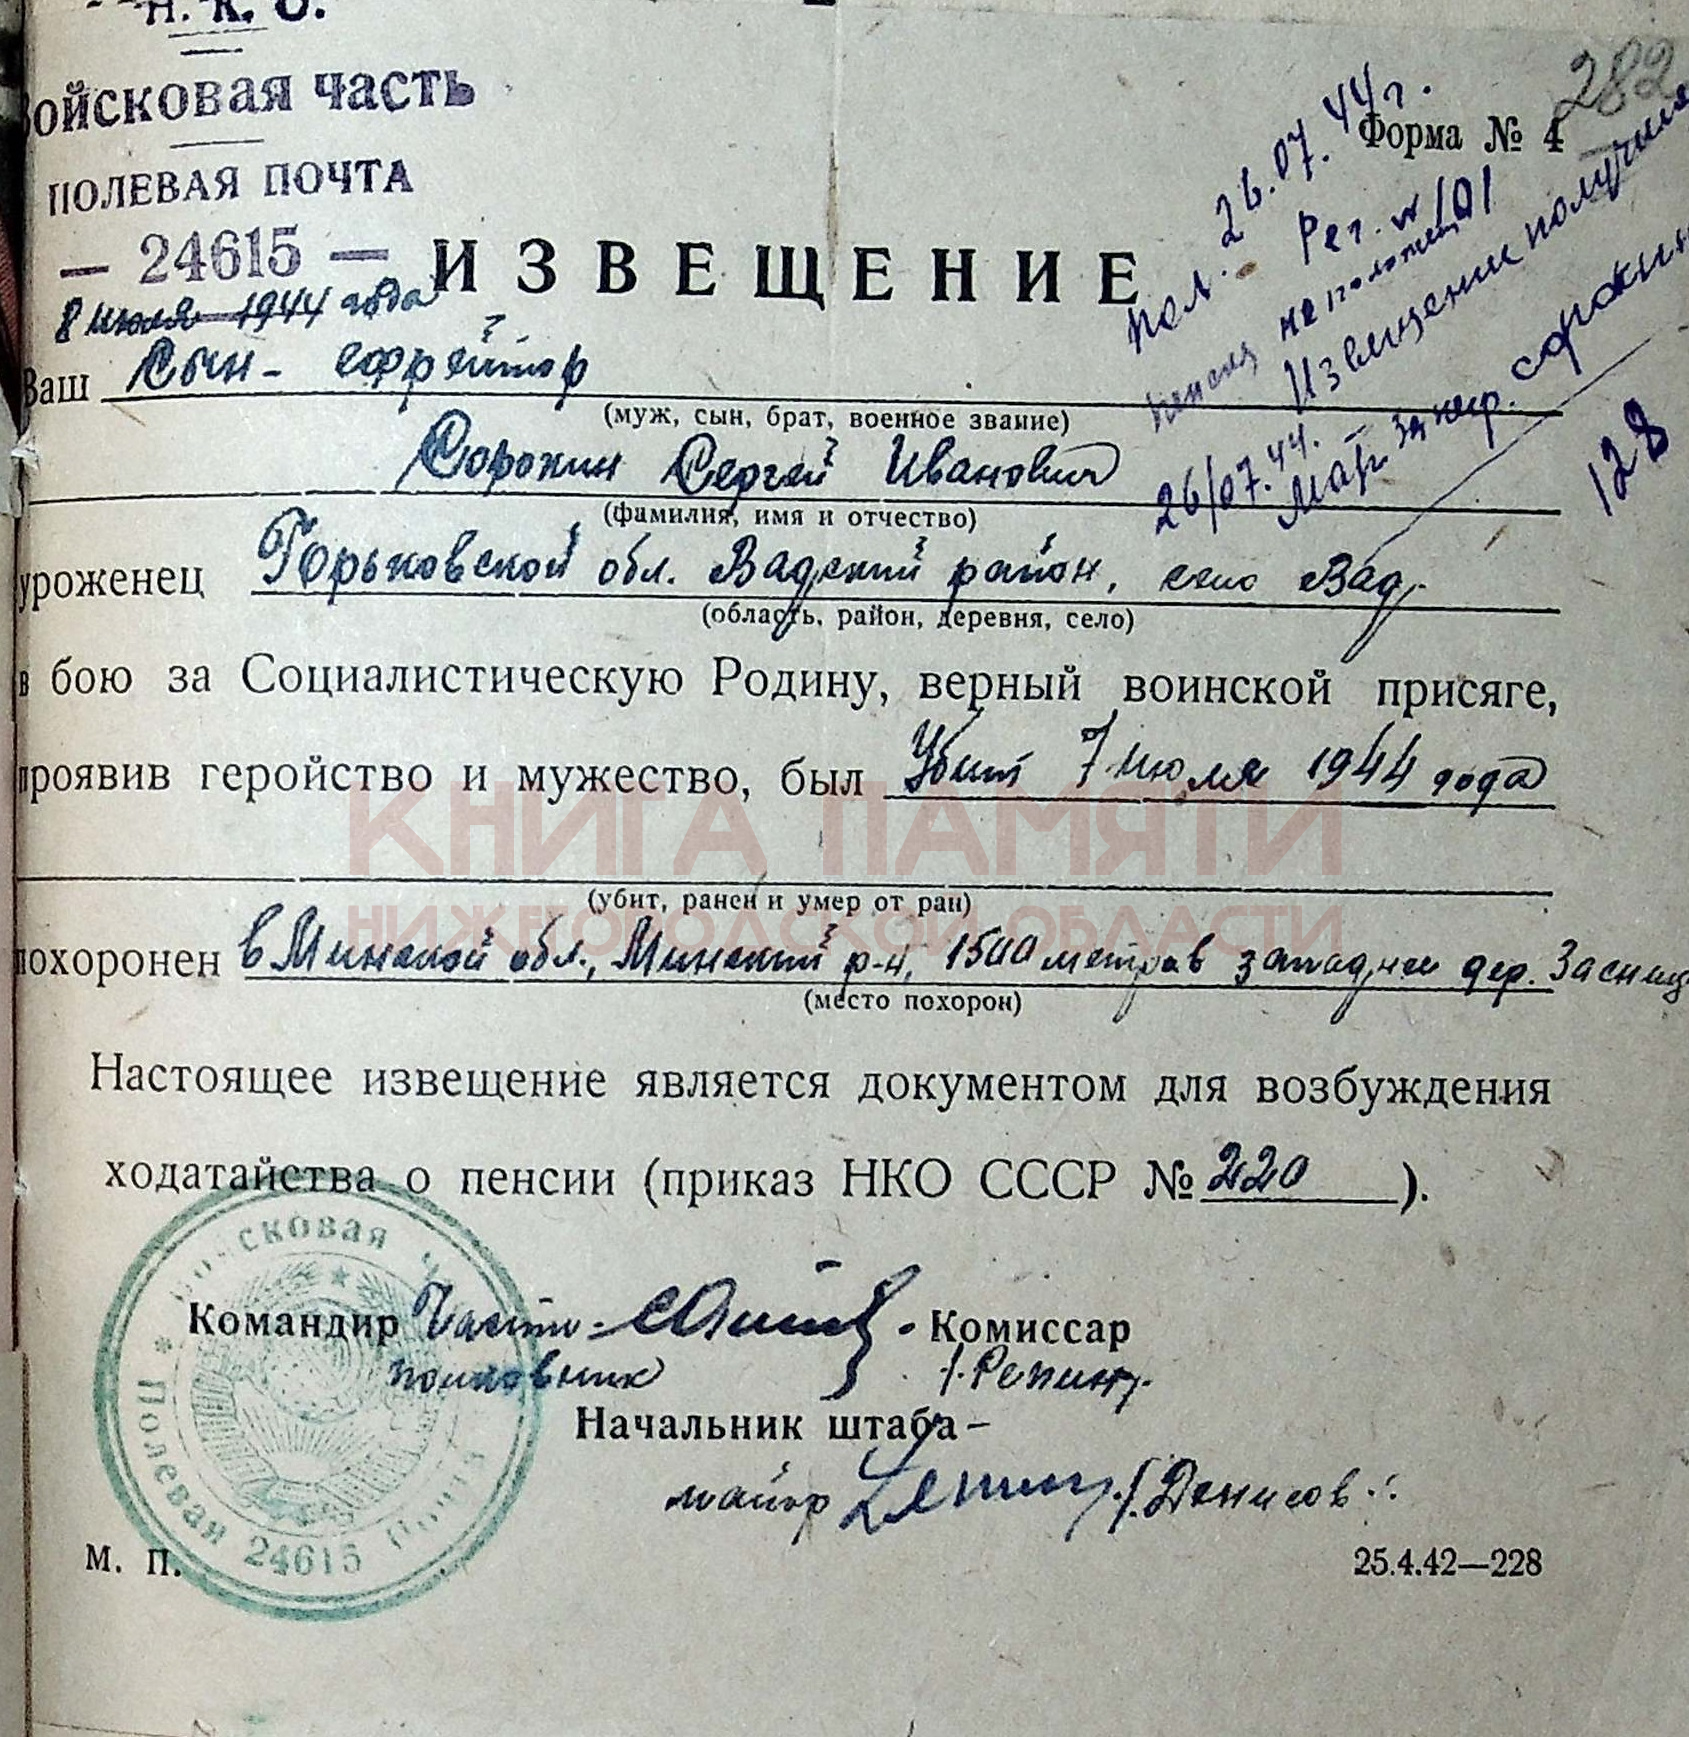 Н. К. О.
Войсковая часть
ПОЛЕВАЯ ПОЧТА
— 24615 —
8 июля 1944 года
282
Форма № 4
Пол. 26.07.44г.
Рег. № 101
ИЗВЕЩЕНИЕ
Извещение получила
26/07.44.
128
Ваш Сын - ефрейтор
(муж, сын, брат, военное звание)
Сорокин Сергей Иванович
(фамилия, имя и отчество)
уроженец Горьковской обл. Вадский район, село Вад.
(область, район, деревня, село)
в бою за Социалистическую Родину, верный воинской присяге,
проявив геройство и мужество, был Убит 7 июля 1944 года
КНИГА ПАМЯТИ
(убит, ранен и умер от ран)
НИЖЕГОРОДСКОЙ ОБЛАСТИ
похоронен в Минской обл., Минский р-н, 1500 метров западнее дер.
(место похорон)
Настоящее извещение является документом для возбуждения
ходатайства о пенсии (приказ НКО СССР № 220 ).
Командир части - Комиссар
полковник
Начальник штаба -
майор /Денисов/
М. П.
25.4.42—228
Войсковая
Полевая Почта 24615